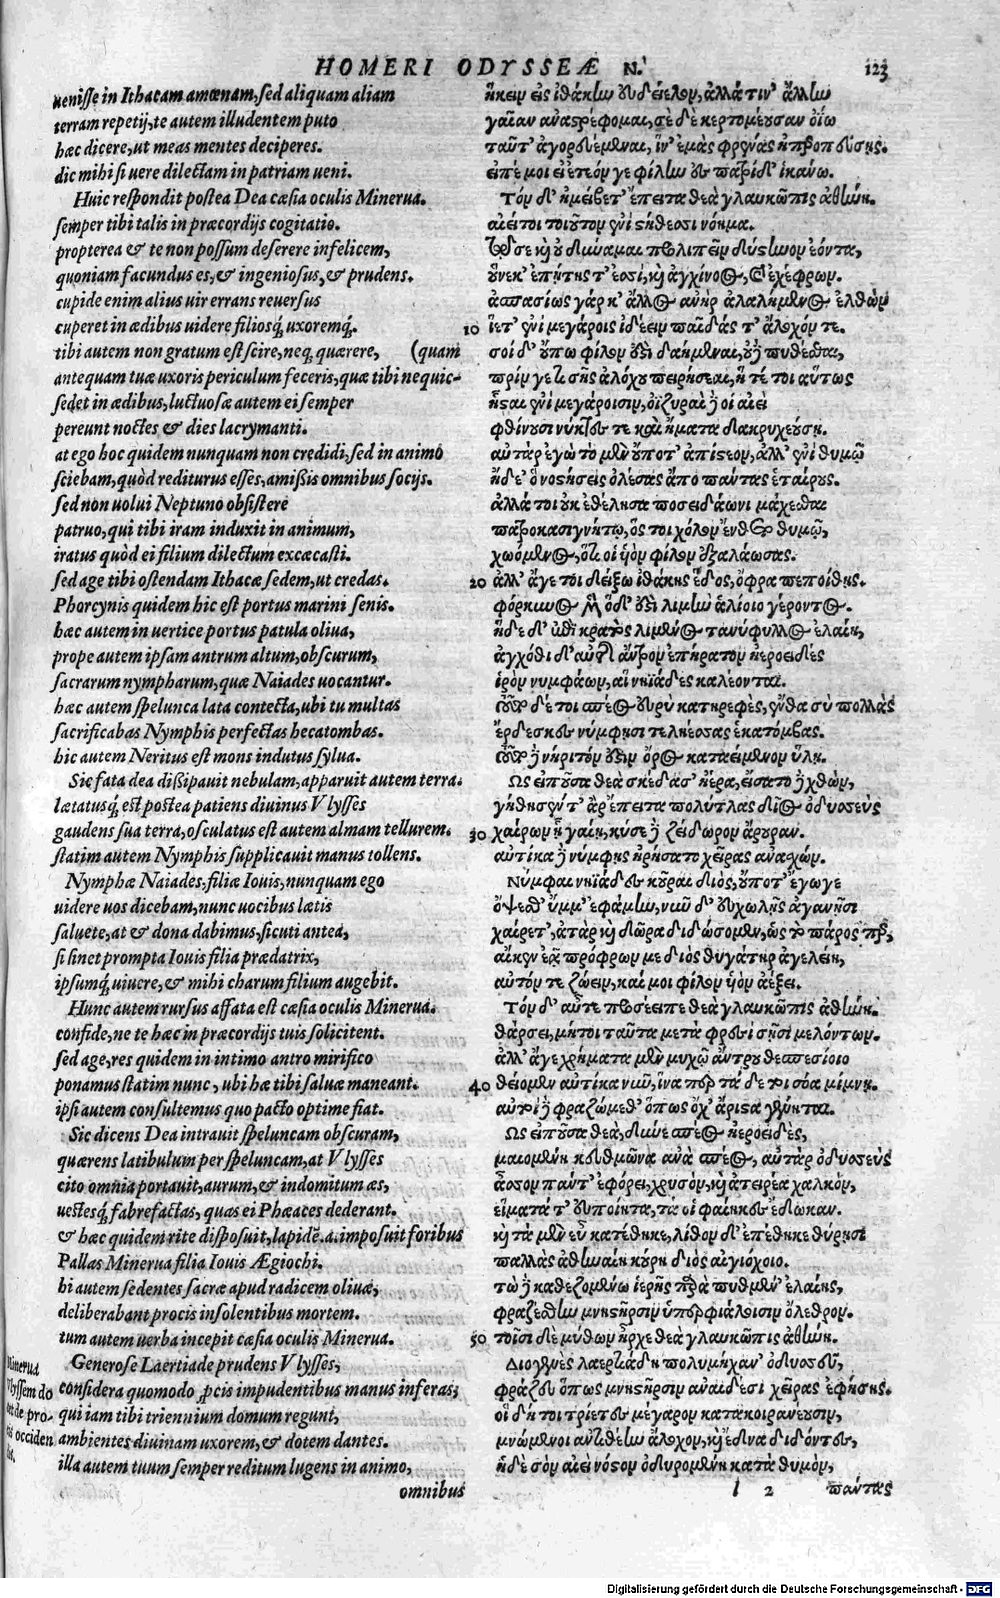 HOMERI ODYSSEÆ N.
123
uenisse in Ithacam amœnam, sed aliquam aliam
terram repetij, te autem illudentem puto
hæc dicere, ut meas mentes deciperes.
dic mihi si uere dilectam in patriam ueni.
Huic respondit postea Dea cæsia oculis Minerua.
semper tibi talis in præcordijs cogitatio.
propterea & te non possum deserere infelicem,
quoniam facundus es, & ingeniosus, & prudens.
cupide enim alius uir errans reuersus
cuperet in ædibus uidere filiosq́; uxoremq́;.
tibi autem non gratum est scire, neq; quærere, (quam
antequam tuæ uxoris periculum feceris, quæ tibi nequic-
sedet in ædibus, luctuosæ autem ei semper
pereunt noctes & dies lacrymanti.
at ego hoc quidem nunquam non credidi, sed in animo
sciebam, quòd rediturus esses, amißis omnibus socijs.
sed non uolui Neptuno obsistere
patruo, qui tibi iram induxit in animum,
iratus quòd ei filium dilectum excæcasti.
sed age tibi ostendam Ithacæ sedem, ut credas.
Phorcynis quidem hic est portus marini senis.
hæc autem in uertice portus patula oliua,
prope autem ipsam antrum altum, obscurum,
sacrarum nympharum, quæ Naiades uocantur.
hæc autem spelunca lata contecta, ubi tu multas
sacrificabas Nymphis perfectas hecatombas.
hic autem Neritus est mons indutus sylua.
Sic fata dea dißipauit nebulam, apparuit autem terra.
lætatusq́; est postea patiens diuinus Vlysses
gaudens sua terra, osculatus est autem almam tellurem.
statim autem Nymphis supplicauit manus tollens.
Nymphæ Naiades, filiæ Iouis, nunquam ego
uidere uos dicebam, nunc uocibus lætis
saluete, at & dona dabimus, sicuti antea,
si sinet prompta Iouis filia prædatrix,
ipsumq́; uiuere, & mihi charum filium augebit.
Hunc autem rursus affata est cæsia oculis Minerua.
confide, ne te hæc in præcordijs tuis solicitent.
sed age, res quidem in intimo antro mirifico
ponamus statim nunc, ubi hæ tibi saluæ maneant.
ipsi autem consultemus quo pacto optime fiat.
Sic dicens Dea intrauit speluncam obscuram,
quærens latibulum per speluncam, at Vlysses
cito omnia portauit, aurum, & indomitum æs,
uestesq́; fabrefactas, quas ei Phæaces dederant.
& hæc quidem rite disposuit, lapidẽ.a. imposuit foribus
Pallas Minerua filia Iouis Ægiochi.
hi autem sedentes sacræ apud radicem oliuæ,
deliberabant procis insolentibus mortem.
tum autem uerba incepit cæsia oculis Minerua.
Generose Laertiade prudens Vlysses,
considera quomodo ꝓcis impudentibus manus inferas,
qui iam tibi triennium domum regunt,
ambientes diuinam uxorem, & dotem dantes.
illa autem tuum semper reditum lugens in animo,
omnibus
Minerua
Vlyssem do
de pro-
occiden
ἥκειν εἰς ἰθάκην εὐδείελον, ἀλλά τιν' ἄλλην
γαῖαν ἀναστρέφομαι, σὲ δὲ κερτομέουσαν ὀΐω
ταῦτ' ἀγορευέμεναι, ἵν' ἐμὰς φρένας ἠπεροπεύσῃς.
εἰπέ μοι εἰ ἐτεόν γε φίλην ἐς πατρίδ' ἱκάνω.
Τὸν δ' ἠμείβετ' ἔπειτα θεὰ γλαυκῶπις ἀθήνη.
αἰεί τοι τοιοῦτον ἐνὶ στήθεσσι νόημα.
τῷ σε καὶ οὐ δύναμαι προλιπεῖν δύστηνον ἐόντα,
οὕνεκ' ἐπητής τ' ἐσσὶ, καὶ ἀγχίνοος, καὶ ἐχέφρων.
ἀσπασίως γάρ κ' ἄλλος ἀνὴρ ἀλαλήμενος ἐλθὼν
10 ἵετ' ἐνὶ μεγάροις ἰδέειν παῖδάς τ' ἄλοχόν τε.
σοὶ δ' οὔπω φίλον ἐστὶ δαήμεναι, οὐδὲ πυθέσθαι,
πρίν γ' ἔτι σῆς ἀλόχου πειρήσεαι, ἥ τέ τοι αὔτως
ἧσται ἐνὶ μεγάροισιν, ὀϊζυραὶ δέ οἱ αἰεὶ
φθίνουσι νύκτες τε καὶ ἤματα δακρυχεούσῃ.
αὐτὰρ ἐγὼ τὸ μὲν οὔποτ' ἀπίστεον, ἀλλ' ἐνὶ θυμῷ
ᾔδε' ὃ νοστήσεις ὀλέσας ἄπο πάντας ἑταίρους.
ἀλλά τοι οὐκ ἐθέλησα ποσειδάωνι μάχεσθαι
πατροκασιγνήτῳ, ὅς τοι χόλον ἔνθετο θυμῷ,
χωόμενος, ὅτι οἱ υἱὸν φίλον ἐξαλάωσας.
20 ἀλλ' ἄγε τοι δείξω ἰθάκης ἕδος, ὄφρα πεποίθῃς.
φόρκυνος μὲν ὅδ' ἐστὶ λιμὴν ἁλίοιο γέροντος.
ἥδε δ' ἐπὶ κρατὸς λιμένος τανύφυλλος ἐλαίη,
ἀγχόθι δ' αὐτῆς ἄντρον ἐπήρατον ἠεροειδὲς
ἱρὸν νυμφάων, αἳ νηϊάδες καλέονται.
τοῦτο δέ τοι σπέος εὐρὺ κατηρεφὲς, ἔνθα σὺ πολλὰς
ἔρδεσκες νύμφῃσι τεληέσσας ἑκατόμβας.
τοῦτο δὲ νήριτόν ἐστιν ὄρος καταειμένον ὕλῃ.
Ως εἰποῦσα θεὰ σκέδασ' ἠέρα, εἴσατο δὲ χθών,
γήθησέν τ' ἄρ ἔπειτα πολύτλας δῖος ὀδυσσεὺς
30 χαίρων ᾗ γαίῃ, κύσε δὲ ζείδωρον ἄρουραν.
αὐτίκα δὲ νύμφῃς ἠρήσατο χεῖρας ἀνασχών.
Νύμφαι νηϊάδες κοῦραι διὸς, οὔποτ' ἔγωγε
ὄψεσθ' ὔμμ' ἐφάμην, νῦν δ' εὐχωλῇς ἀγανῇσι
χαίρετ', ἀτὰρ καὶ δῶρα διδώσομεν, ὡς τὸ πάρος περ,
αἴκεν ἐᾷ πρόφρων με διὸς θυγάτηρ ἀγελείη,
αὐτόν τε ζώειν, καί μοι φίλον υἱὸν ἀέξει.
Τὸν δ' αὖτε προσέειπε θεὰ γλαυκῶπις ἀθήνη.
θάρσει, μήτοι ταῦτα μετὰ φρεσὶ σῇσι μελόντων.
ἀλλ' ἄγε χρήματα μὲν μυχῷ ἄντρου θεσπεσίοιο
40 θείομεν αὐτίκα νῦν, ἵνα περ τά δε τοι σόα μίμνῃ.
αὐτοὶ δὲ φραζώμεθ' ὅπως ὄχ' ἄριστα γένηται.
Ως εἰποῦσα θεὰ, δῦνε σπέος ἠεροειδὲς,
μαιομένη κευθμῶνα ἀνὰ σπέος, αὐτὰρ ὀδυσσεὺς
ἆσσον πάντ' ἐφόρει, χρυσὸν, καὶ ἀτειρέα χαλκὸν,
εἵματά τ' εὐποίητα, τά οἱ φαίηκες ἔδωκαν.
καὶ τὰ μὲν εὖ κατέθηκε, λίθον δ' ἐπέθηκε θύρῃσι
παλλὰς ἀθηναίη κούρη διὸς αἰγιόχοιο.
τὼ δὲ καθεζομένω ἱερῆς παρὰ πυθμέν' ἐλαίης,
φραζέσθην μνηστῆρσιν ὑπερφιάλοισιν ὄλεθρον.
50 τοῖσι δὲ μύθων ἦρχε θεὰ γλαυκῶπις ἀθήνη.
Διογενὲς λαερτιάδη πολυμήχαν' ὀδυσσεῦ,
φράζευ ὅπως μνηστῆρσιν ἀναιδέσι χεῖρας ἐφήσῃς.
οἳ δή τοι τρίετες μέγαρον κατακοιρανέουσιν,
μνώμενοι ἀντιθέην ἄλοχον, καὶ ἕδνα διδόντες,
ἡ δὲ σὸν αἰεὶ νόστον ὀδυρομένη κατὰ θυμὸν,
l 2 πάντας
Digitalisierung gefördert durch die Deutsche Forschungsgemeinschaft - DFG